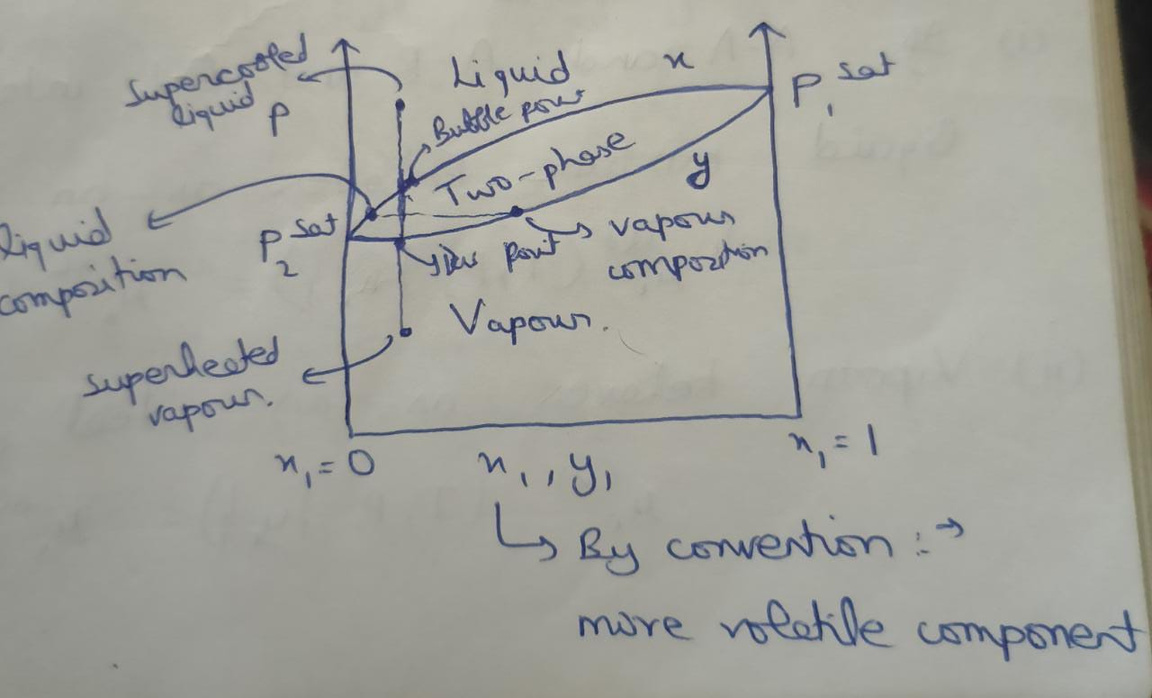 Supercooled
liquid
P
Liquid
x
P₁ sat
Bubble point
Two-phase
y
liquid
composition
P₂ sat
Dew point
vapour
composition
Vapour.
superheated
vapour.
x₁ = 0
x₁, y₁
x₁ = 1
By convention :→
more volatile component